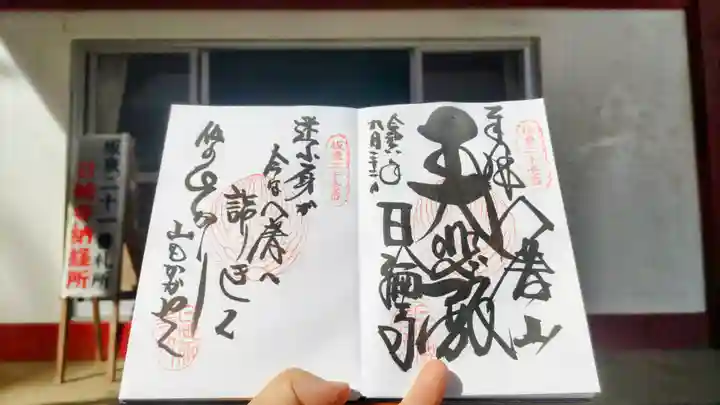 坂東二十一番札所
日輪寺納経所
坂東二十一番
奉拝 八溝山
大悲殿
日輪寺
令和六年
九月
坂東二十一番
迷ふ身が
今は八溝へ
詣りきて
仏のひかり
山もかがやく